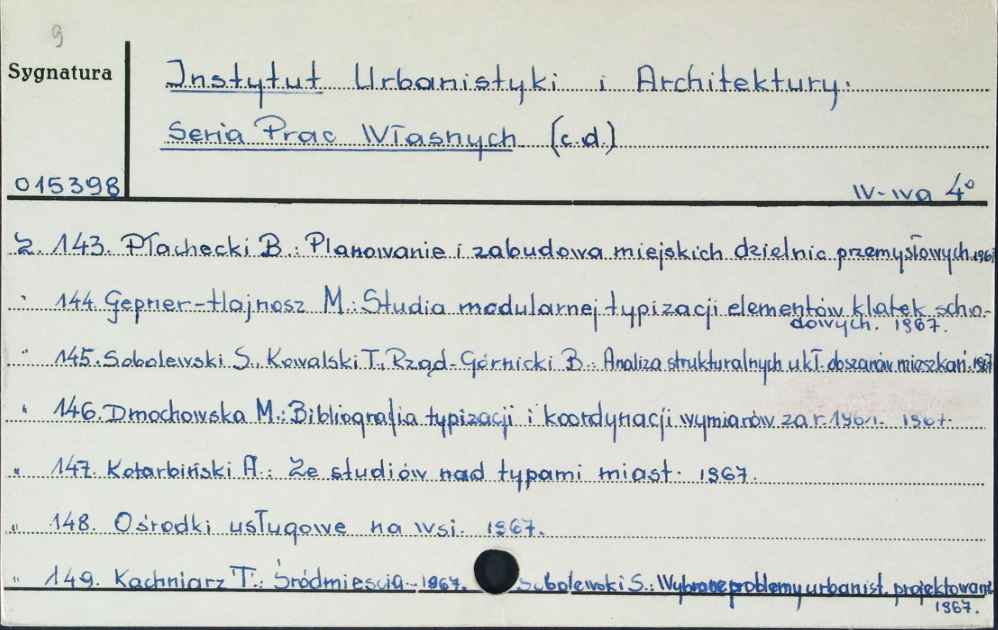 9
Sygnatura
Instytut Urbanistyki i Architektury.
Seria Prac Własnych (c.d.)
015398
W-wa 4°
Z. 143. Płachecki B.: Planowanie i zabudowa miejskich dzielnic przemysłowych. 1967
" 144. Gepner-Hajnosz M.: Studia modularnej typizacji elementów klatek scho-
dowych. 1967.
" 145. Sobolewski S., Kowalski T., Rząd-Górnicki B.: Analiza strukturalnych ukł. obszarów mieszkań. 1967
" 146. Dmochowska M.: Bibliografia typizacji i koordynacji wymiarów za r. 1967.
" 147. Kotarbiński A.: Ze studiów nad typami miast. 1967.
" 148. Ośrodki usługowe na wsi. 1967.
" 149. Kachniarz T.: Śródmieścia. 1967. Sobolewski S.: Wybrane problemy urbanist. projektowani
1967.